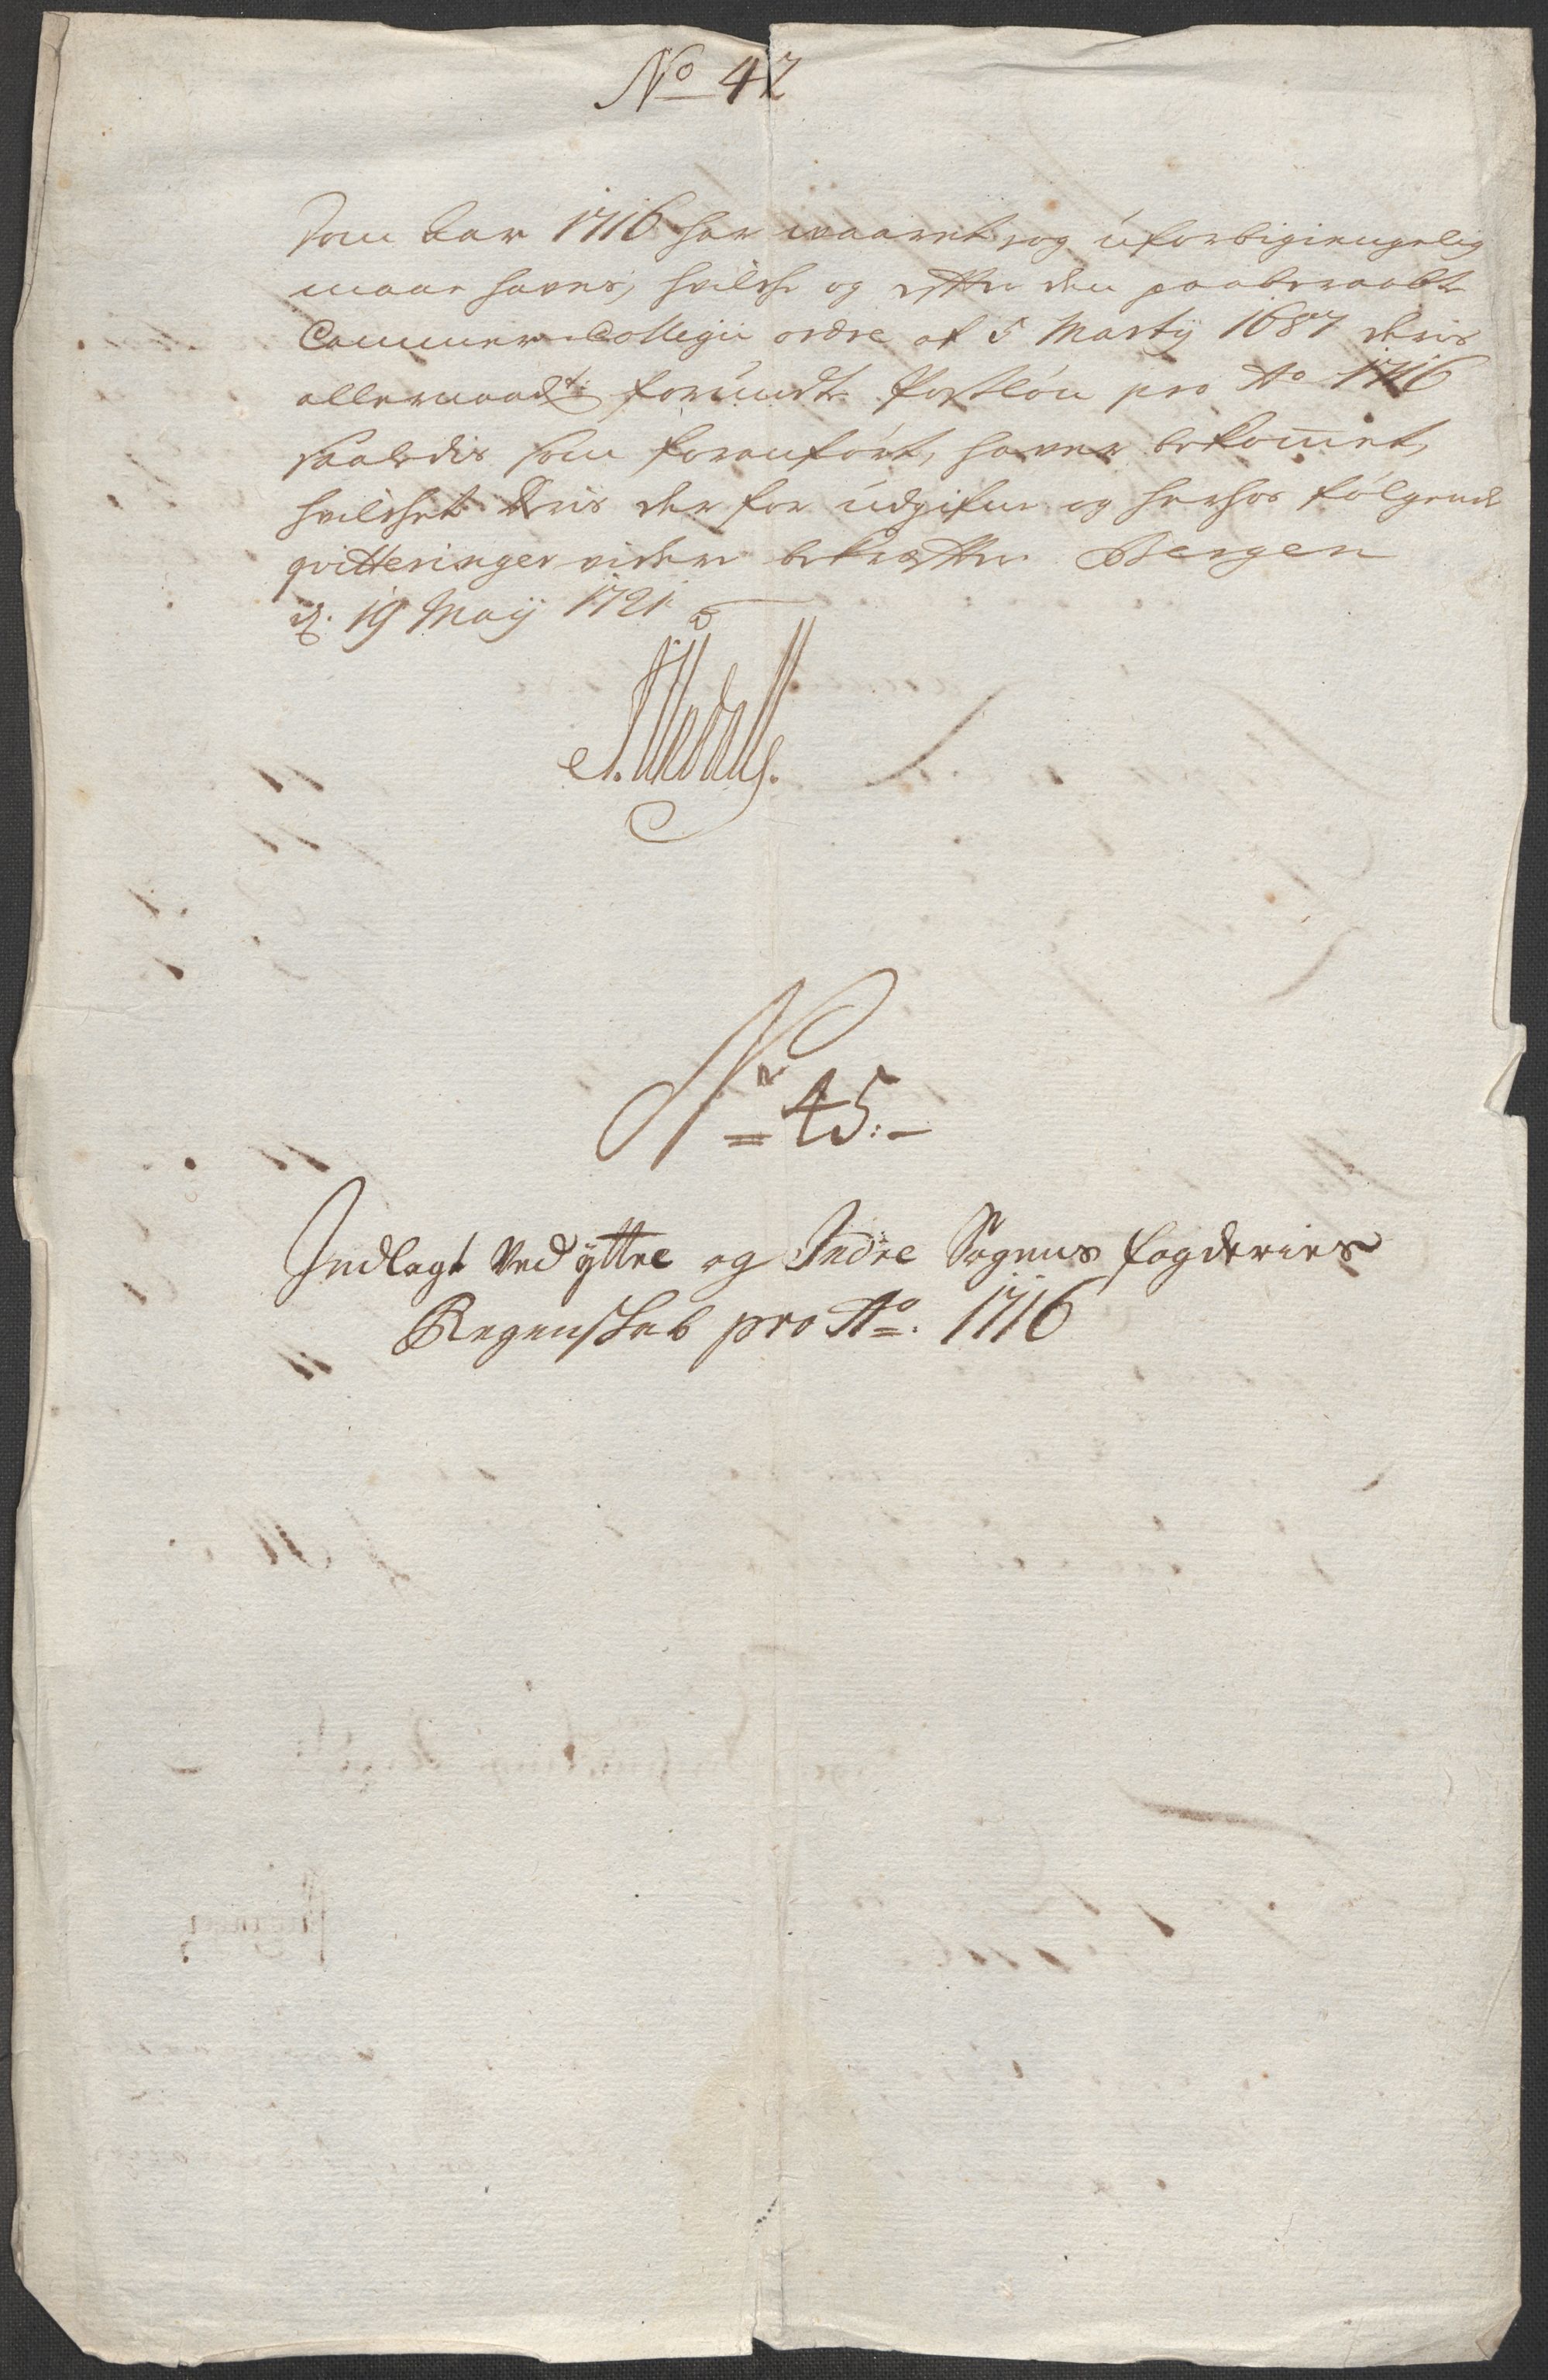 No 42
som Aar 1716 har waaret og uforbigiengelig
maae haves, hvilche og efter den paaberaabte
Cammer Collegii ordre af 5 Martij 1687 deris
allernaadst forundte Postløn pro Ao 1716
saaledis som foranført, haver bekomet,
hvilchet deris derfor udgifne og herhos følgende
qvitteringer videre bekræfter Bergen
d. 19 Maij 1721
No 45:-
Indlagt Ved Yttre og Indre Sogens fogderies
Regenskab pro Ao. 1716